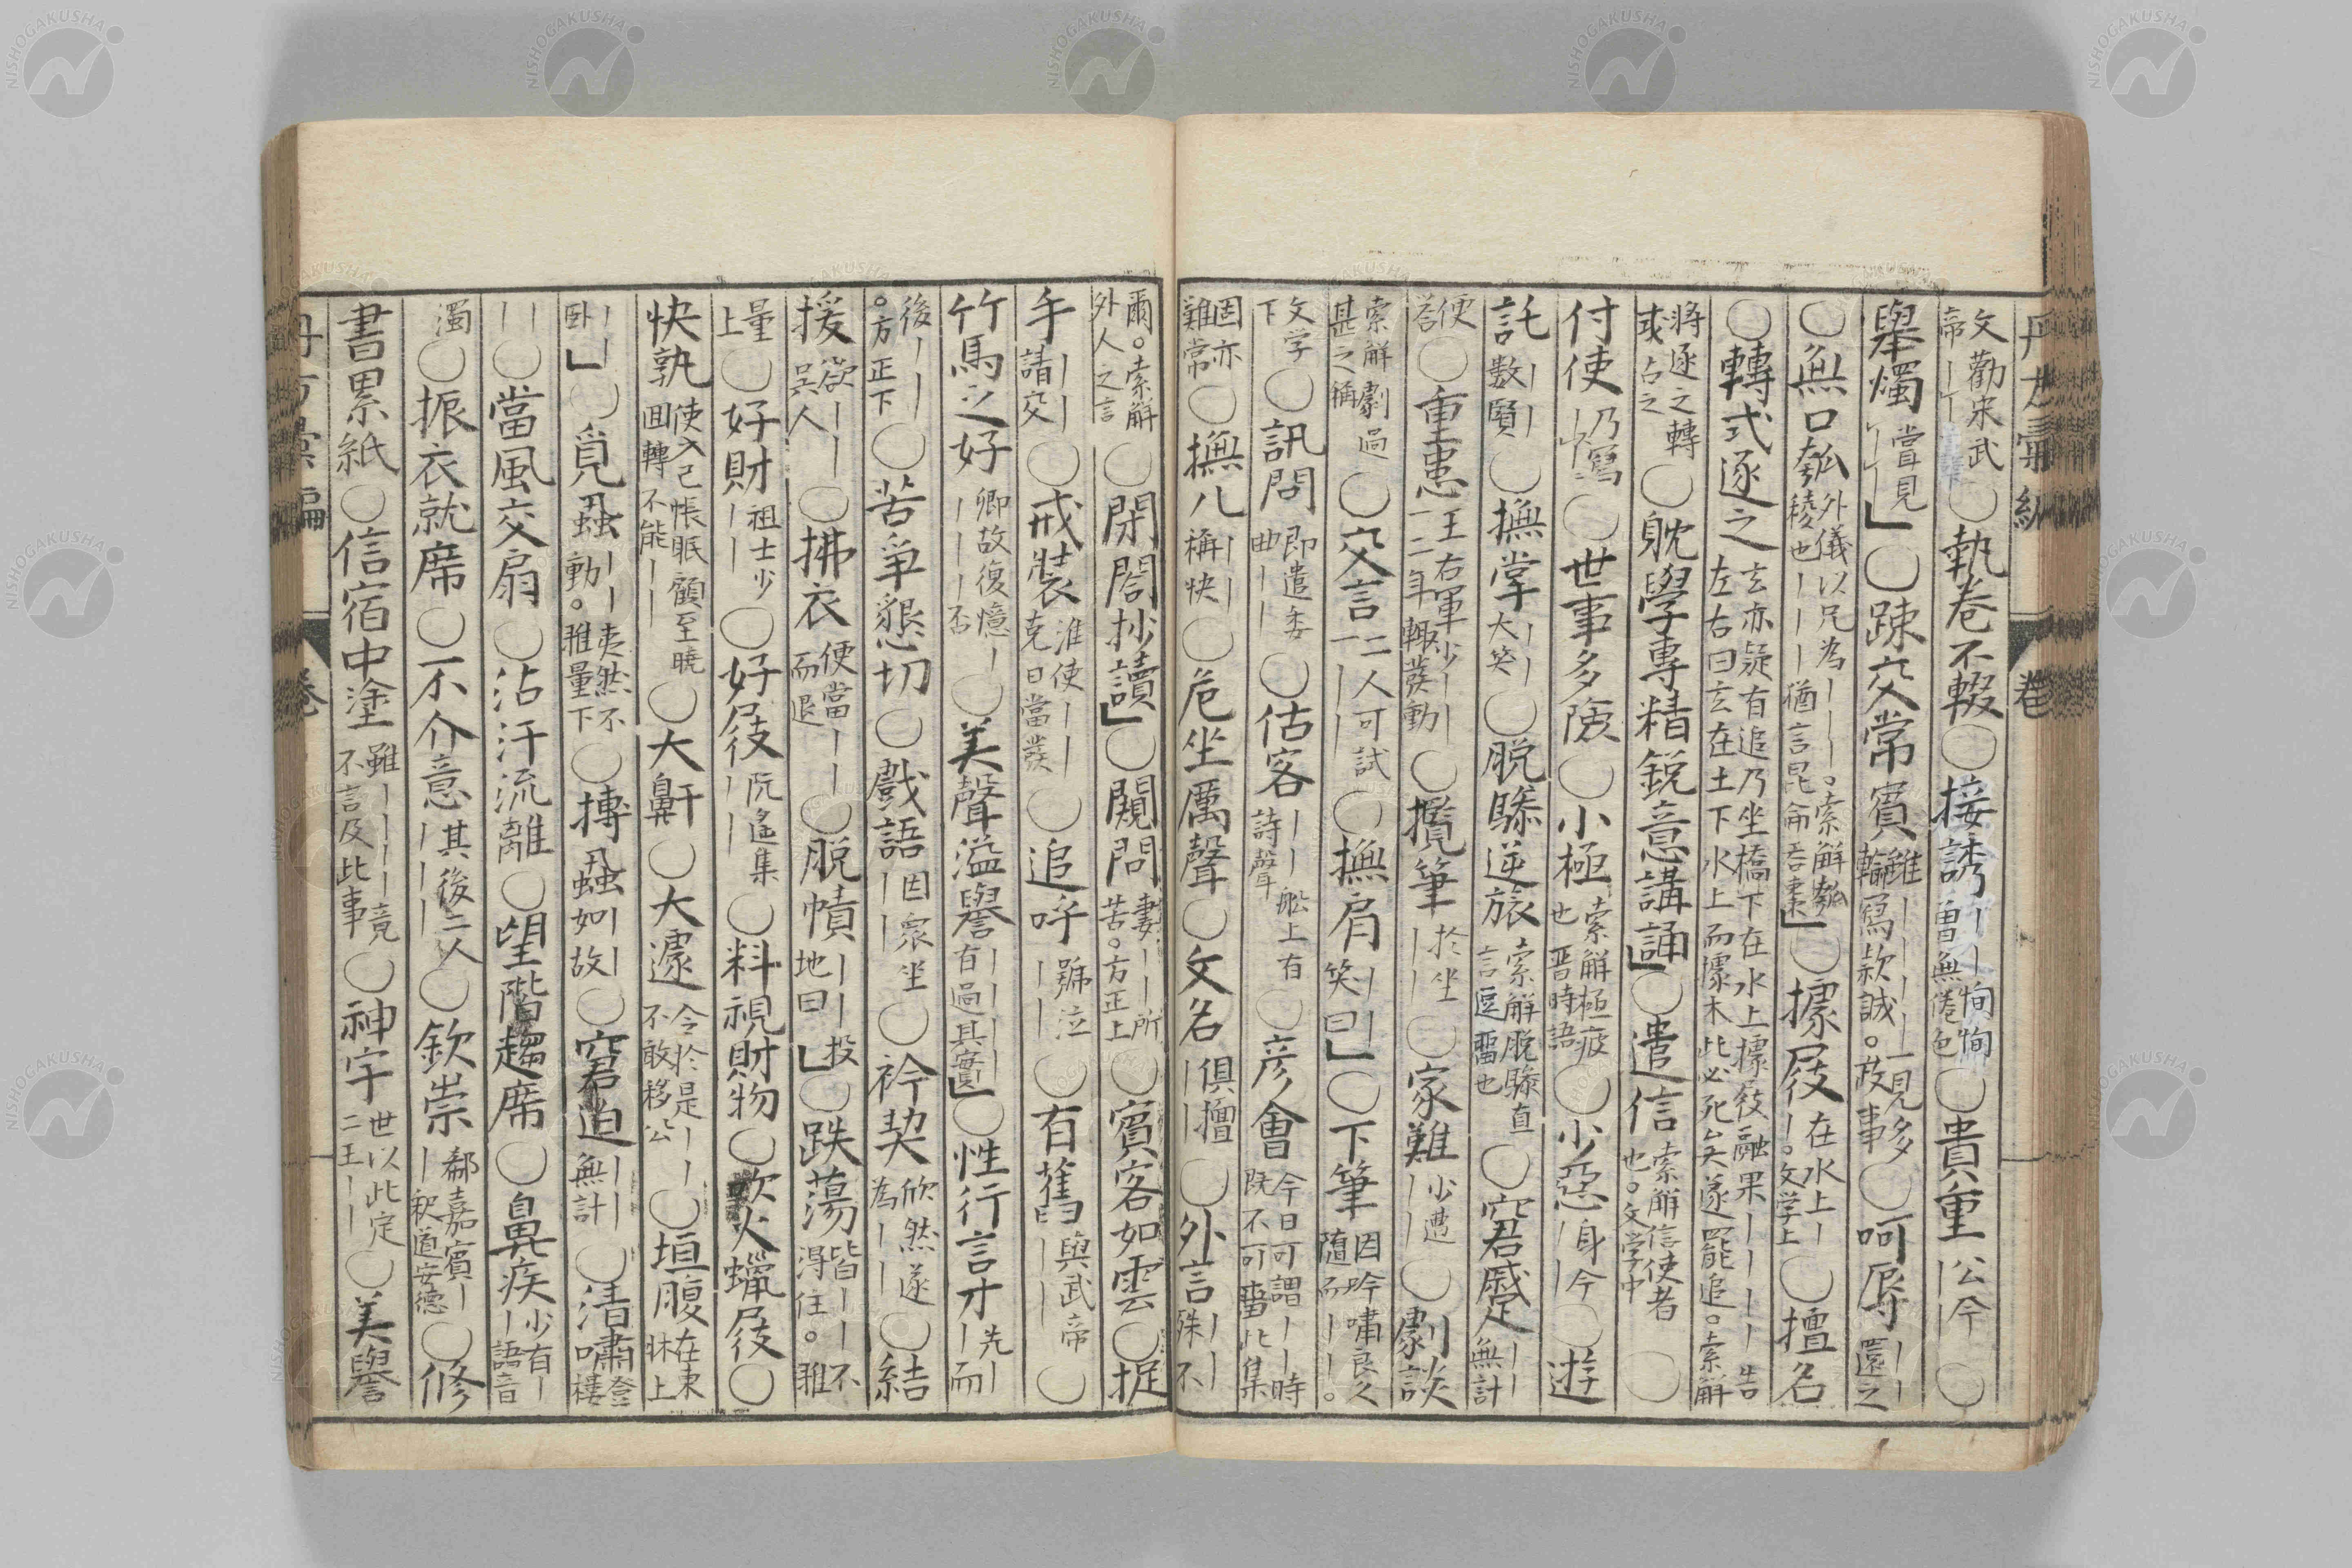 丹方彙編 巻
文勸宋武帝｜｜○執巻不輟○接誘｜｜恂恂曾無倦色○貴重公今｜｜○
舉燭當見｜｜」○疎交常賓雖｜｜｜｜一見多輸寫款誠。政事○呵辱｜｜還之
○無口匏外儀以兄為｜｜｜。索解匏稜也｜｜｜猶言昆侖吞棗」○據屐在水上｜｜。文学上○擅名
○轉式逐之玄亦疑有追乃坐橋下在水上據屐融果｜｜｜｜告左右曰玄在土下水上而據木此必死矣遂罷追。索解
將逐之轉或占之○躭學專精鋭意講誦」○遣信索解信使者也。文学中○
付使乃寫｜｜○世事多險○小極索解極疲也晋時語○少惡身今｜｜○遊
託｜｜數賢○撫掌｜｜大笑○脱驂逆旅索解脱驂直言逗畱也○窘蹙｜｜無計
便答○重患王右軍少｜｜一二年輙發動○攬筆於坐｜｜○家難少遭｜｜○劇談
索解劇過甚之稱○交言二人可試一｜｜○撫肩｜｜笑曰」○下筆因吟嘯良久随而｜｜。
文学下○訊問即遣委曲｜｜○估客｜｜舩上有詩聲○彦會今日可謂｜｜時既不可畱此集
固亦難常○撫几｜｜稱快○危坐厲聲○文名俱擅｜｜○外言｜｜殊不
爾。索解外人之言○閉閤抄讀」○闚問妻｜｜所苦。方正上○賓客如雲○捉
手｜｜請交○戒裝淮使｜｜克日當發○追呼號泣｜｜○有舊與武帝｜｜○
竹馬之好卿故復憶｜｜｜｜否○美聲溢譽｜｜｜｜有過其實」○性行言才先｜｜而
後｜｜｜。方正下○苦爭懇切○戲語因衆坐｜｜○衿契欣然遂為｜｜○結
援欲｜｜呉人○拂衣便當｜｜而退○脱幘｜｜投地曰」○跌蕩皆｜｜不得住。雅
量上○好財祖士少｜｜○好屐阮遙集｜｜○料視財物○吹火蠟屐○
快孰使入己帳眠顧至曉囬轉不能｜｜○大鼾○大遽今於是｜｜不敢移公○坦腹在東牀上
｜｜卧」○覓蝨｜｜夷然不動。雅量下○摶蝨｜｜如故○窘迫｜｜無計○清嘯登樓
｜｜○當風交扇○沾汗流離○望階趨席○鼻疾少有｜｜語音
濁○振衣就席○不介意其後二人｜｜｜○欽崇郗嘉賓｜｜釈道安德○修
書累紙○信宿中塗雖｜｜｜｜竟不言及此事○神宇世以此定二王｜｜○美譽
丹方彙編 巻
NISHOGAKUSHA